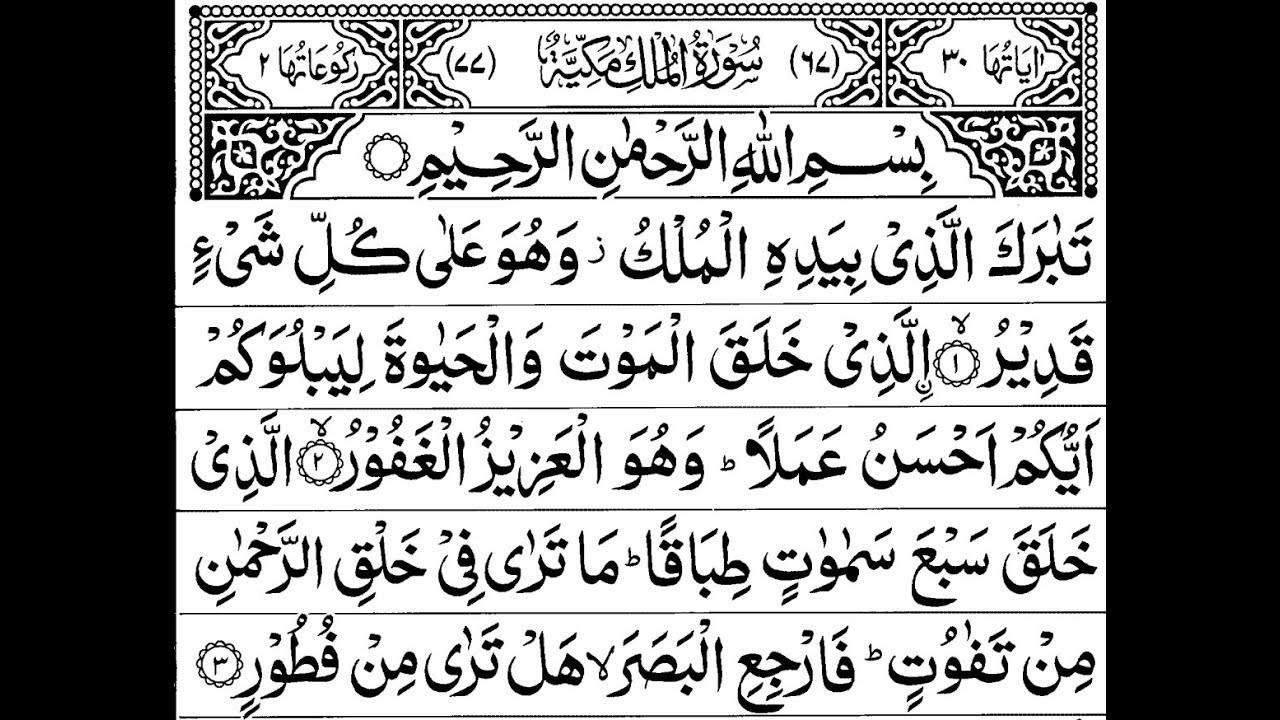 اٰيَاتُهَا ٣٠ (٦٧) سُوْرَةُ الْمُلْكِ مَكِّيَّةٌ (٧٧) رُكُوْعَاتُهَا ٢
بِسْمِ اللّٰهِ الرَّحْمٰنِ الرَّحِيْمِ
تَبٰرَكَ الَّذِىْ بِيَدِهِ الْمُلْكُ ز وَهُوَ عَلٰى كُلِّ شَىْءٍ
قَدِيْرُ ۙ﴿١﴾ اۨلَّذِىْ خَلَقَ الْمَوْتَ وَالْحَيٰوةَ لِيَبْلُوَكُمْ
اَيُّكُمْ اَحْسَنُ عَمَلًا ؕ وَهُوَ الْعَزِيْزُ الْغَفُوْرُ ۙ﴿٢﴾ الَّذِىْ
خَلَقَ سَبْعَ سَمٰوٰتٍ طِبَاقًا ؕ مَا تَرٰى فِىْ خَلْقِ الرَّحْمٰنِ
مِنْ تَفٰوُتٍ ؕ فَارْجِعِ الْبَصَرَ ۙ هَلْ تَرٰى مِنْ فُطُوْرٍ ﴿٣﴾